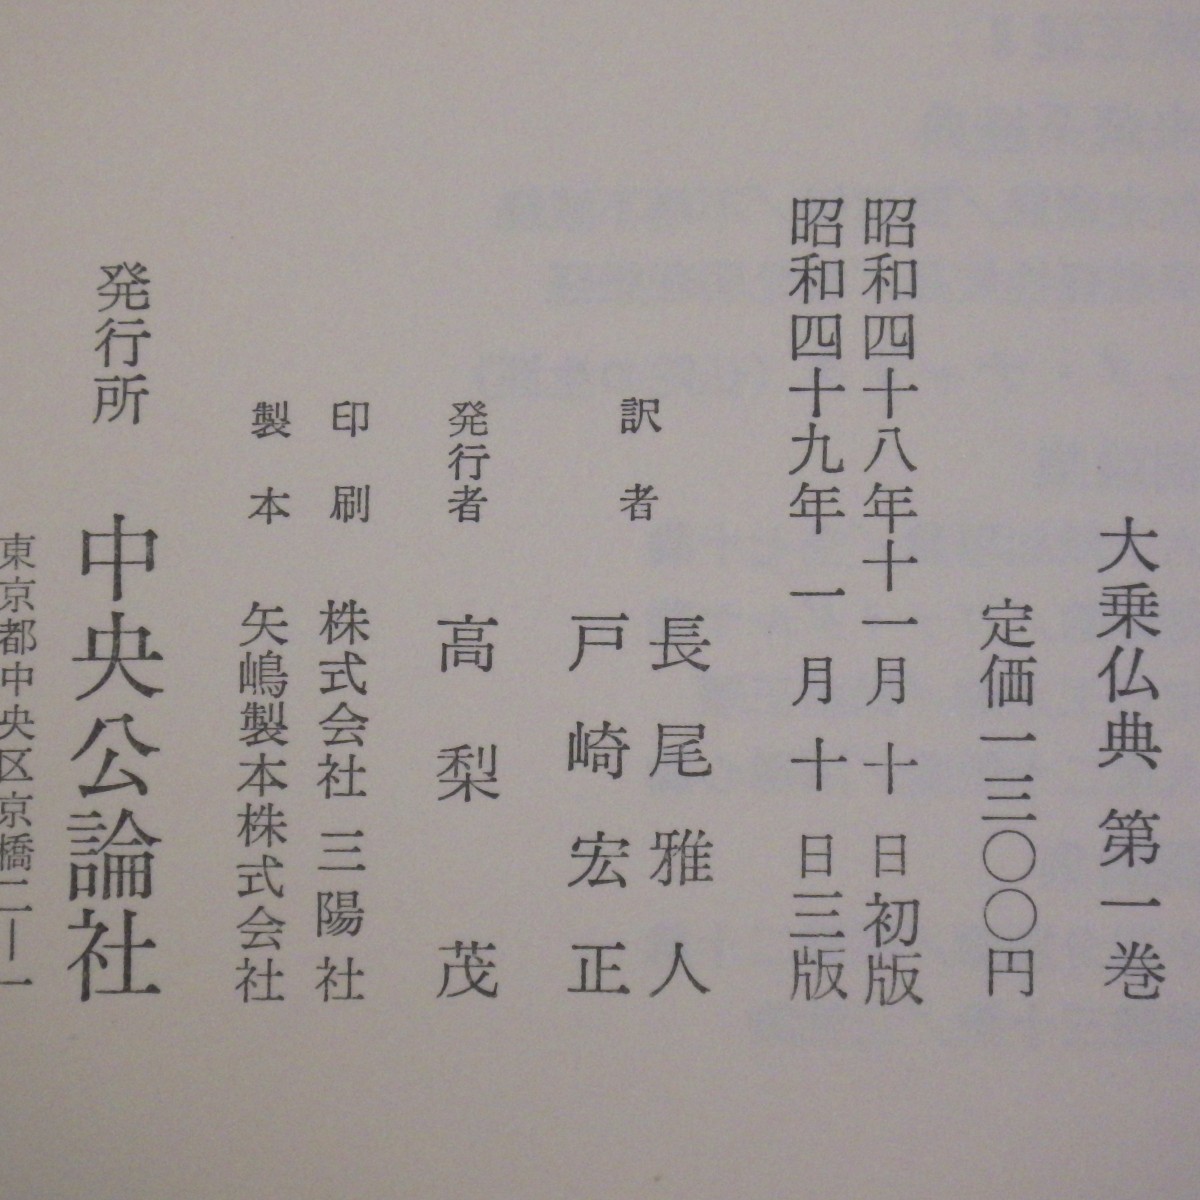 大乗仏典 第一巻
定価一三〇〇円
昭和四十八年十一月 十 日 初版
昭和四十九年 一 月 十 日 三版
訳者 長尾雅人
戸崎宏正
発行者 高梨茂
印刷 株式会社 三陽社
製本 矢嶋製本株式会社
発行所 中央公論社
東京都中央区京橋二―一